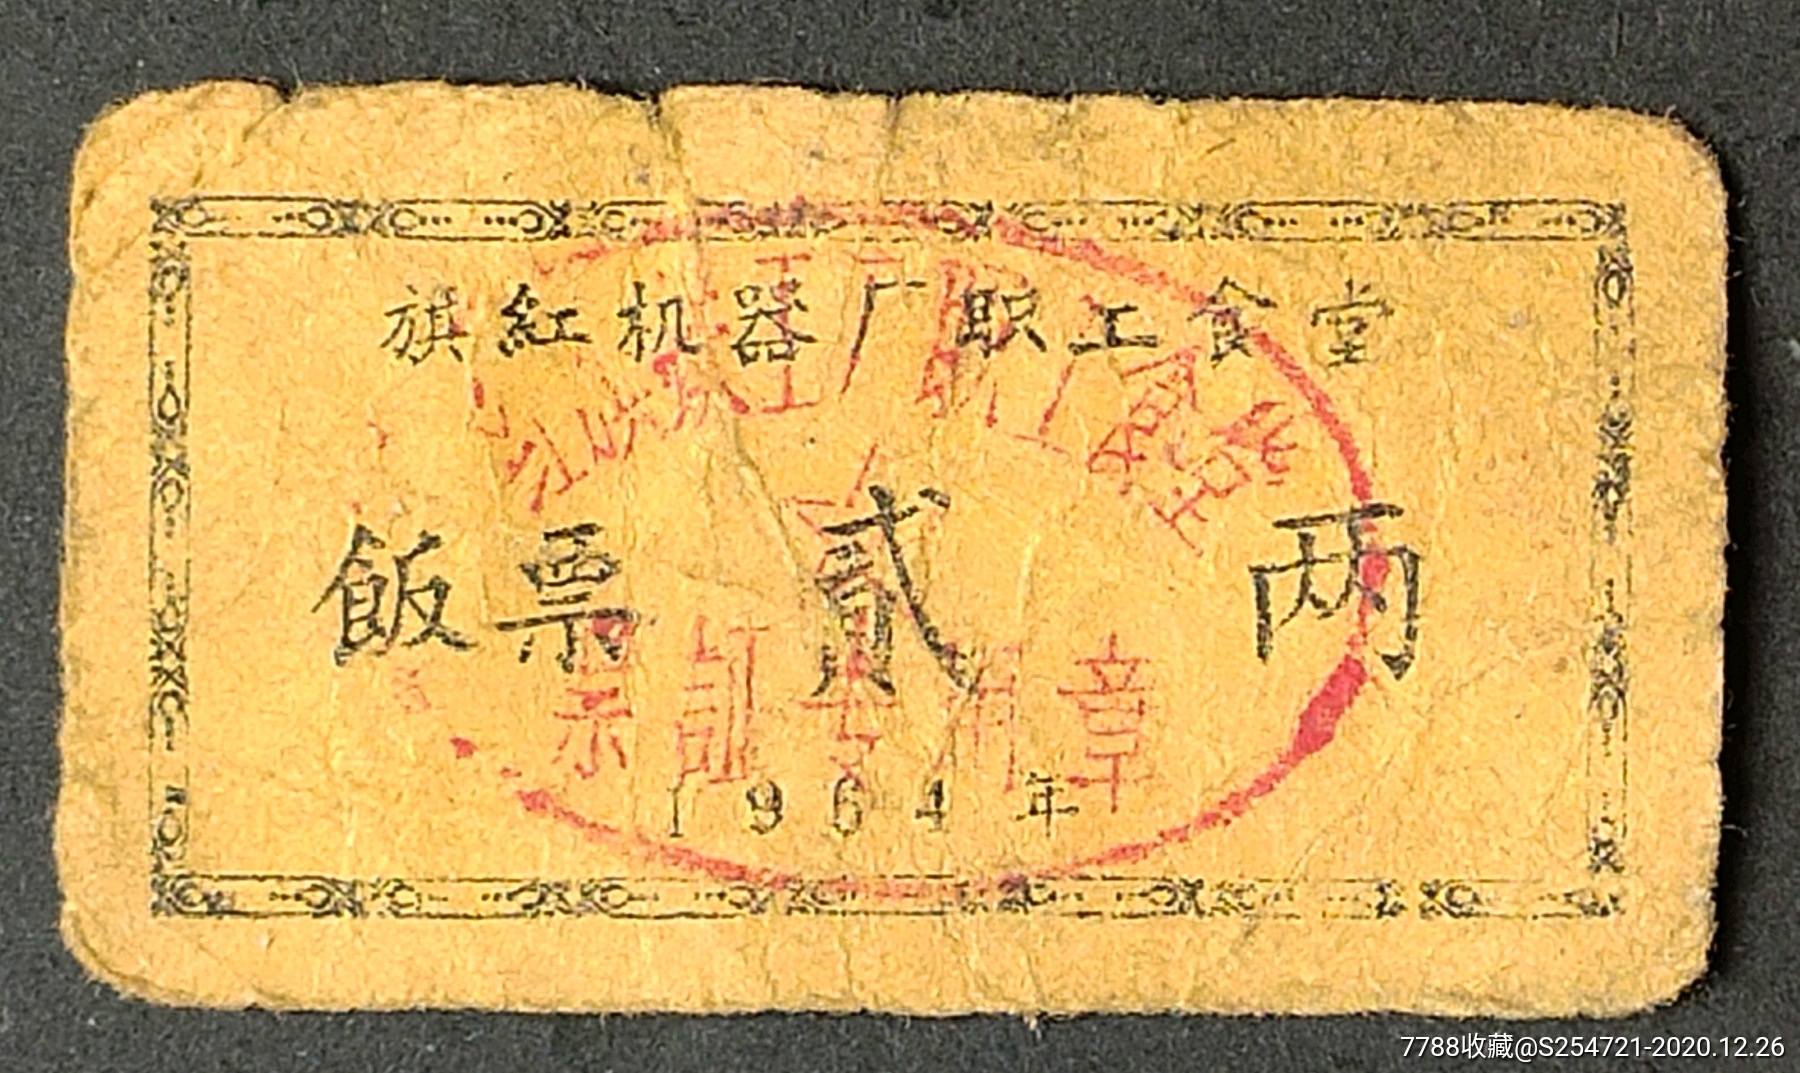 旗紅机器厂职工食堂
飯票 貳 两
1964年
票証专用章
7788收藏@S254721-2020.12.26